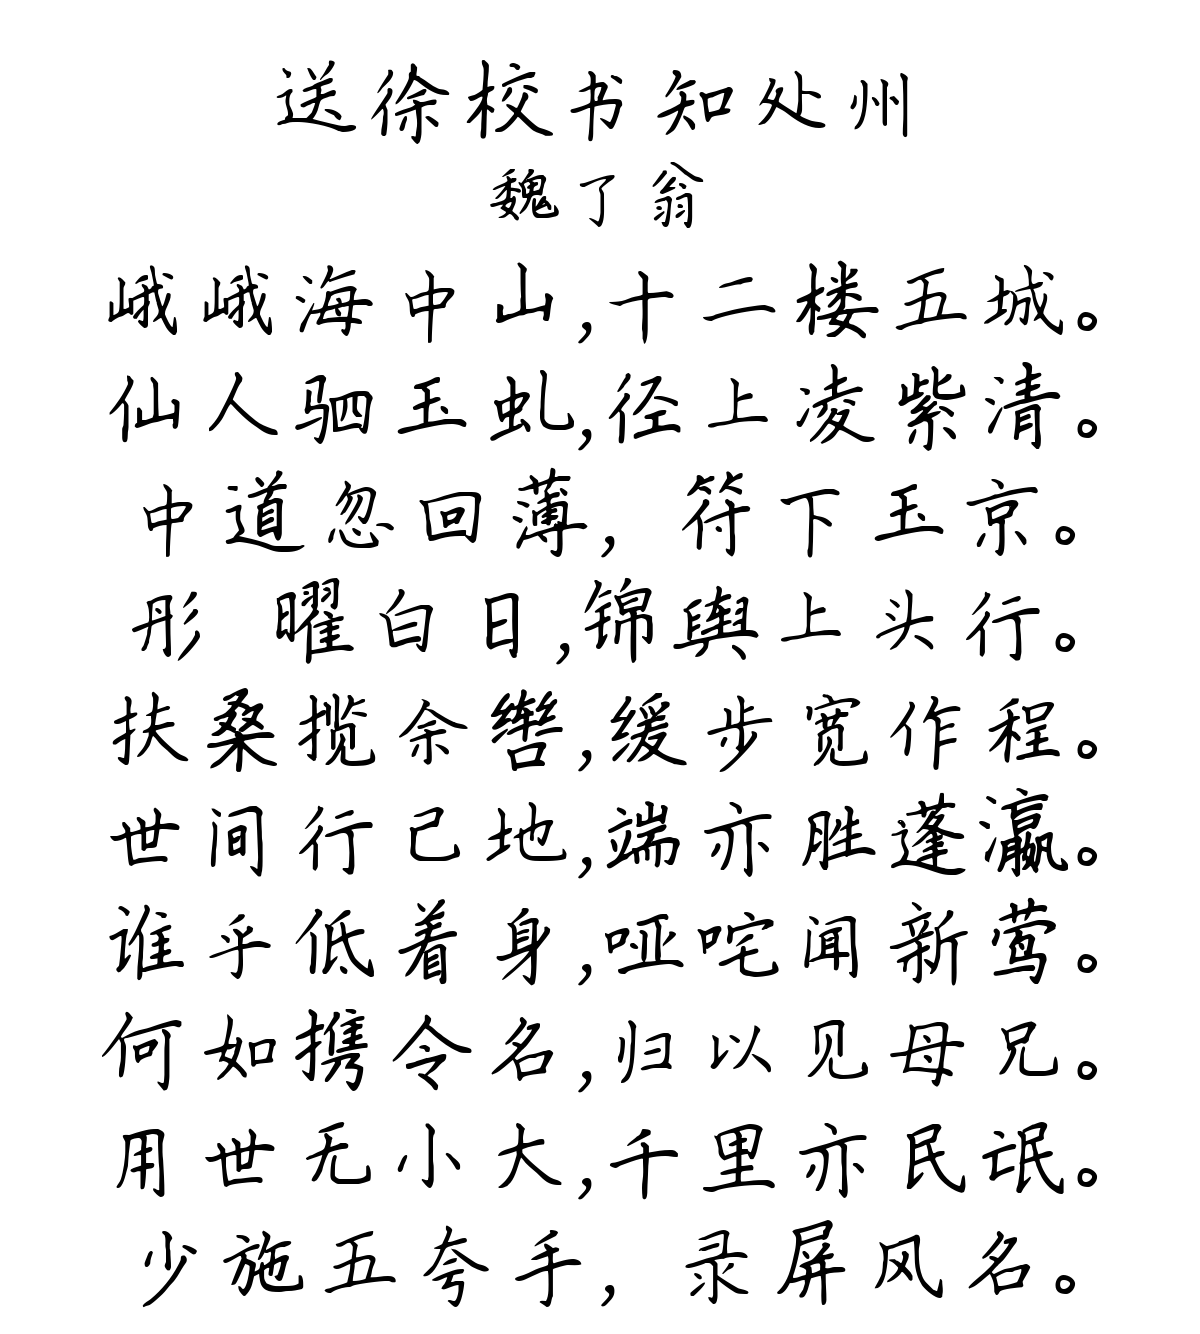 送徐校书知处州
魏了翁
峨峨海中山,十二楼五城。
仙人驷玉虬,径上凌紫清。
中道忽回薄，符下玉京。
彤 曜白日,锦舆上头行。
扶桑揽余辔,缓步宽作程。
世间行己地,端亦胜蓬瀛。
谁乎低着身,哑咤闻新莺。
何如携令名,归以见母兄。
用世无小大,千里亦民氓。
少施五夸手，录屏风名。